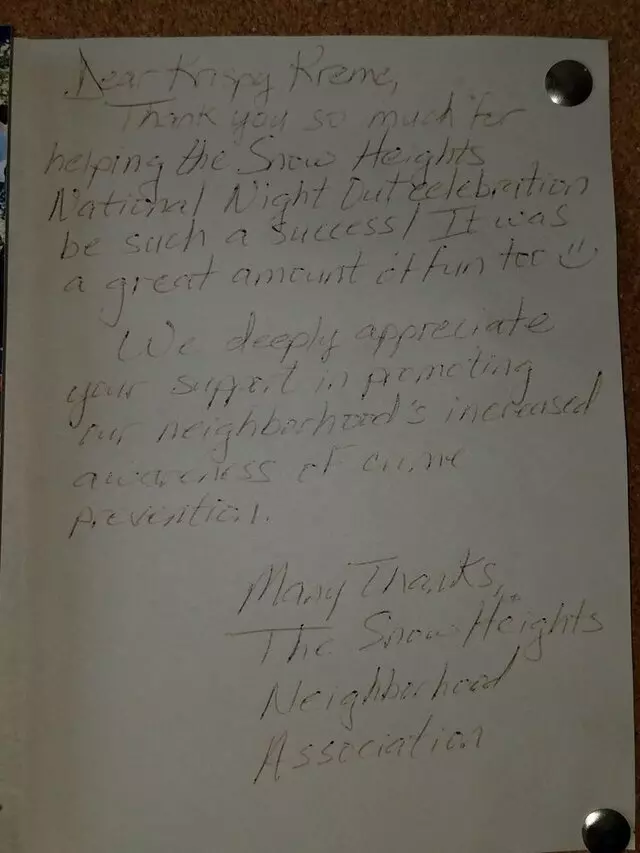 Dear Krispy Kreme,
Thank you so much for
helping the Snow Heights
National Night Out celebration
be such a success! It was
a great amount of fun too
We deeply appreciate
your support in promoting
our neighborhood's increased
awareness of crime
prevention.
Many Thanks,
The Snow Heights
Neighborhood
Association